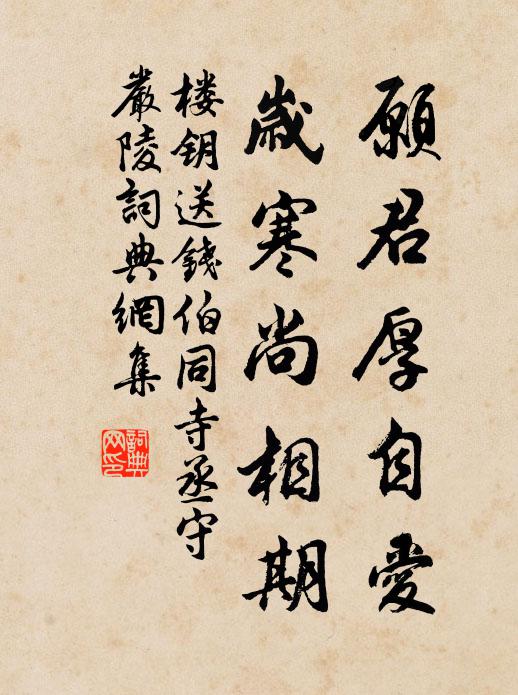 願君厚自愛
歲寒尚相期
楼鈅送錢伯同寺丞守
嚴陵詞典網集
詞典
网印